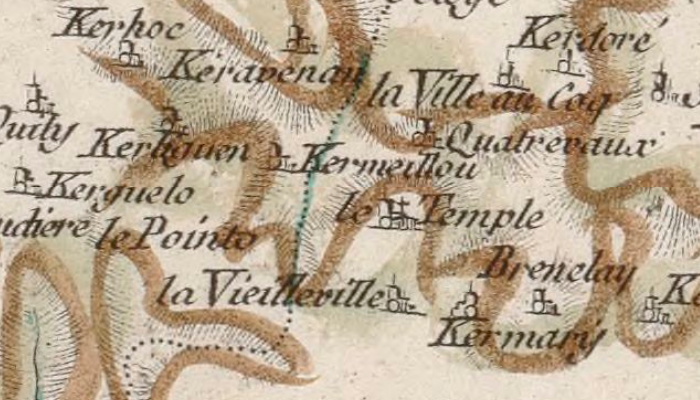 Kerhoc
Kerdoré
Keravenan
la Ville au Coq
Quily
Kerbouen
Quatrevaux
Kermeillou
Kerguelo
le Temple
le Pointo
Brenclay
la Vieilleville
Kermary